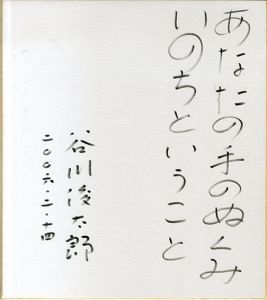 あなたの手のぬくみ
いのちということ
谷川俊太郎
二〇〇六・二・十四